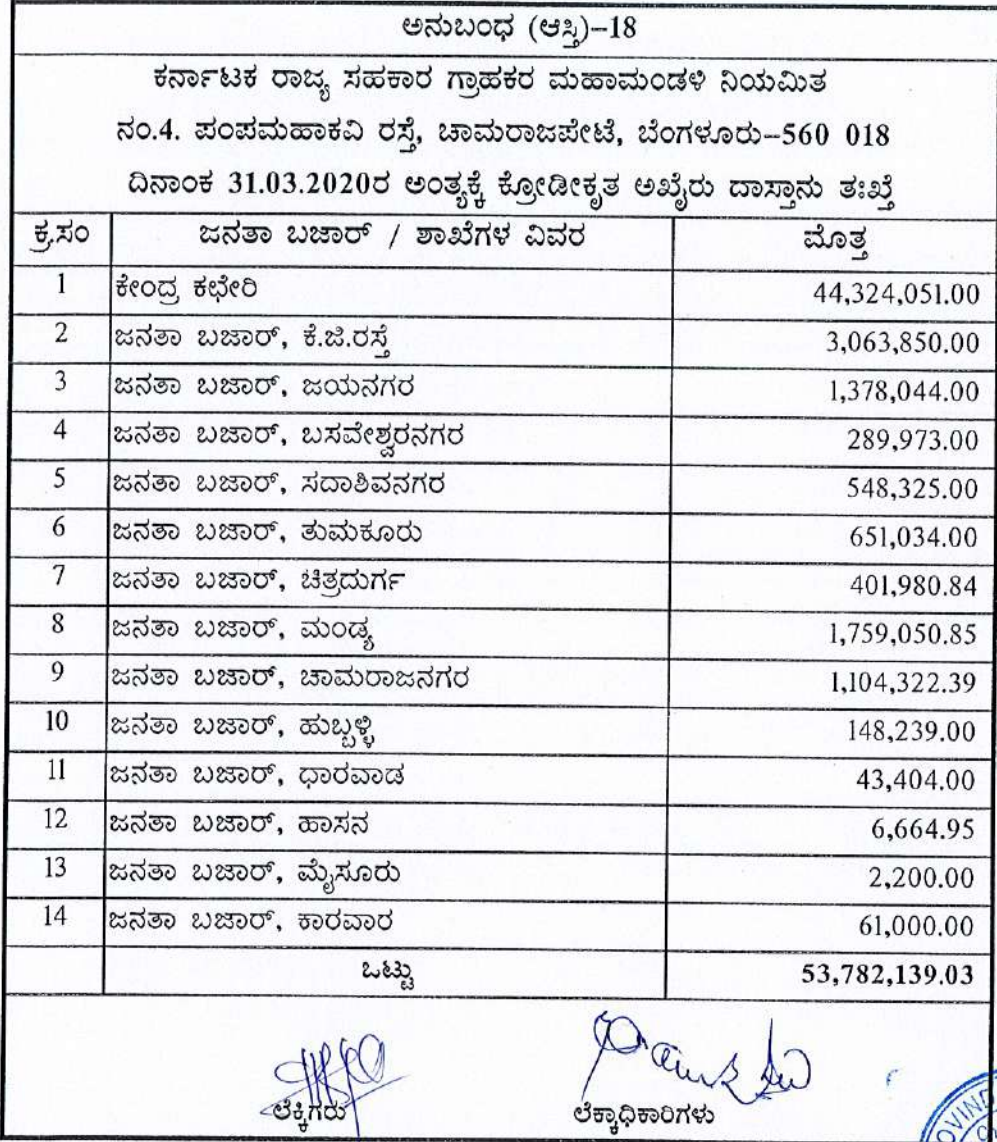 ಅನುಬಂಧ (ಆಸ್ತಿ)–18
ಕರ್ನಾಟಕ ರಾಜ್ಯ ಸಹಕಾರ ಗ್ರಾಹಕರ ಮಹಾಮಂಡಳಿ ನಿಯಮಿತ
ನಂ.4. ಪಂಪಮಹಾಕವಿ ರಸ್ತೆ, ಚಾಮರಾಜಪೇಟೆ, ಬೆಂಗಳೂರು–560 018
ದಿನಾಂಕ 31.03.2020ರ ಅಂತ್ಯಕ್ಕೆ ಕ್ರೋಡೀಕೃತ ಅಖೈರು ದಾಸ್ತಾನು ತಃಖ್ತೆ
ಕ್ರ.ಸಂ ಜನತಾ ಬಜಾರ್ / ಶಾಖೆಗಳ ವಿವರ ಮೊತ್ತ
1 ಕೇಂದ್ರ ಕಛೇರಿ 44,324,051.00
2 ಜನತಾ ಬಜಾರ್, ಕೆ.ಜಿ.ರಸ್ತೆ 3,063,850.00
3 ಜನತಾ ಬಜಾರ್, ಜಯನಗರ 1,378,044.00
4 ಜನತಾ ಬಜಾರ್, ಬಸವೇಶ್ವರನಗರ 289,973.00
5 ಜನತಾ ಬಜಾರ್, ಸದಾಶಿವನಗರ 548,325.00
6 ಜನತಾ ಬಜಾರ್, ತುಮಕೂರು 651,034.00
7 ಜನತಾ ಬಜಾರ್, ಚಿತ್ರದುರ್ಗ 401,980.84
8 ಜನತಾ ಬಜಾರ್, ಮಂಡ್ಯ 1,759,050.85
9 ಜನತಾ ಬಜಾರ್, ಚಾಮರಾಜನಗರ 1,104,322.39
10 ಜನತಾ ಬಜಾರ್, ಹುಬ್ಬಳ್ಳಿ 148,239.00
11 ಜನತಾ ಬಜಾರ್, ಧಾರವಾಡ 43,404.00
12 ಜನತಾ ಬಜಾರ್, ಹಾಸನ 6,664.95
13 ಜನತಾ ಬಜಾರ್, ಮೈಸೂರು 2,200.00
14 ಜನತಾ ಬಜಾರ್, ಕಾರವಾರ 61,000.00
ಒಟ್ಟು 53,782,139.03
ಲೆಕ್ಕಿಗರು ಲೆಕ್ಕಾಧಿಕಾರಿಗಳು